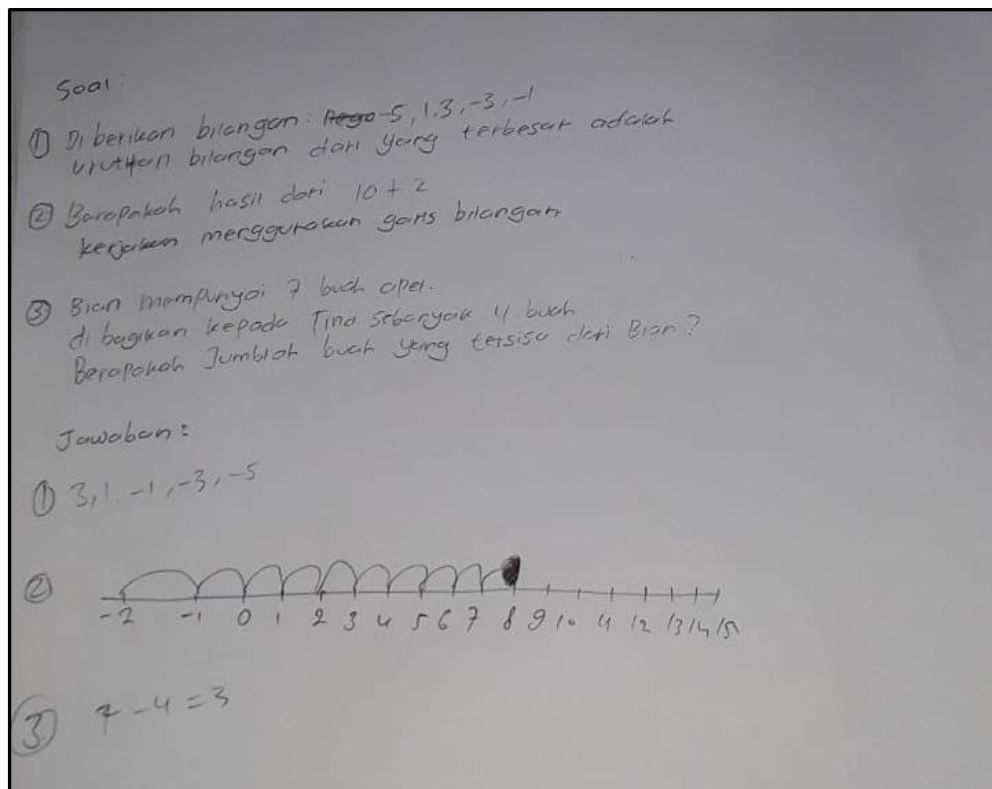 Soal :
① Diberikan bilangan : -5, 1, 3, -3, -1
urutkan bilangan dari yang terbesar adalah
② Berapakah hasil dari 10 + 2
kerjakan menggunakan garis bilangan
③ Bian mempunyai 7 buah apel.
di bagikan kepada Tina sebanyak 4 buah
Berapakah Jumblah buah yang tersisa dari Bian ?
Jawaban :
① 3, 1. -1, -3, -5
②
-2 -1 0 1 2 3 4 5 6 7 8 9 10 11 12 13 14 15
③ 7 - 4 = 3